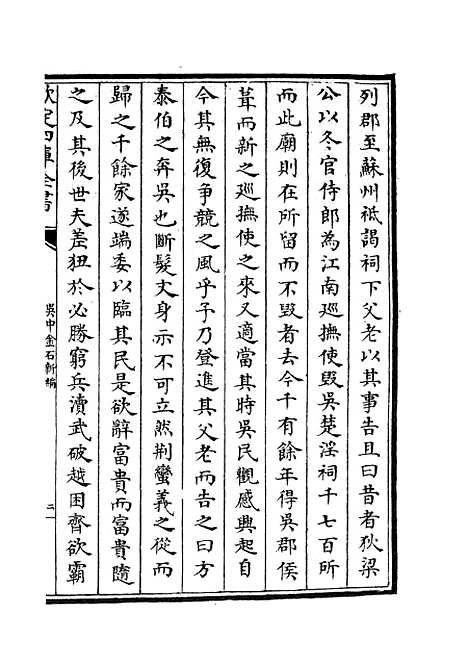 列郡至蘇州祗謁祠下父老以其事告且曰昔者狄梁
公以冬官侍郎為江南廵撫使毁吳楚淫祠千七百所
而此廟則在所留而不毁者去今千有餘年得吳郡侯
葺而新之廵撫使之來又適當其時吳民觀感興起自
今其無復爭競之風乎子乃登進其父老而告之曰方
泰伯之奔吳也斷髮文身示不可立然荆蠻義之從而
歸之千餘家遂端委以臨其民是欲辭富貴而富貴隨
之及其後世夫差狃於必勝窮兵瀆武破越困齊欲霸
欽定四庫全書
吳中金石新編
二